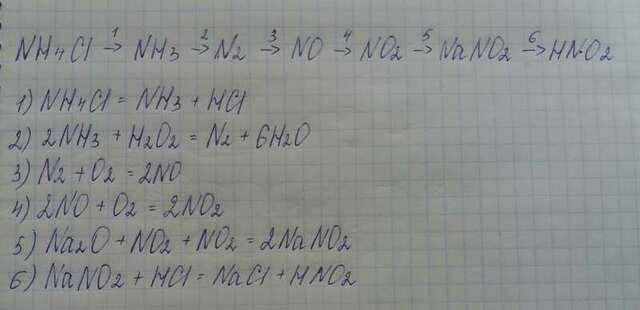 NH4Cl 1→ NH3 2→ N2 3→ NO 4→ NO2 5→ NaNO2 6→ HNO2
1) NH4Cl = NH3 + HCl
2) 2NH3 + H2O2 = N2 + 6H2O
3) N2 + O2 = 2NO
4) 2NO + O2 = 2NO2
5) Na2O + NO2 + NO2 = 2NaNO2
6) NaNO2 + HCl = NaCl + HNO2